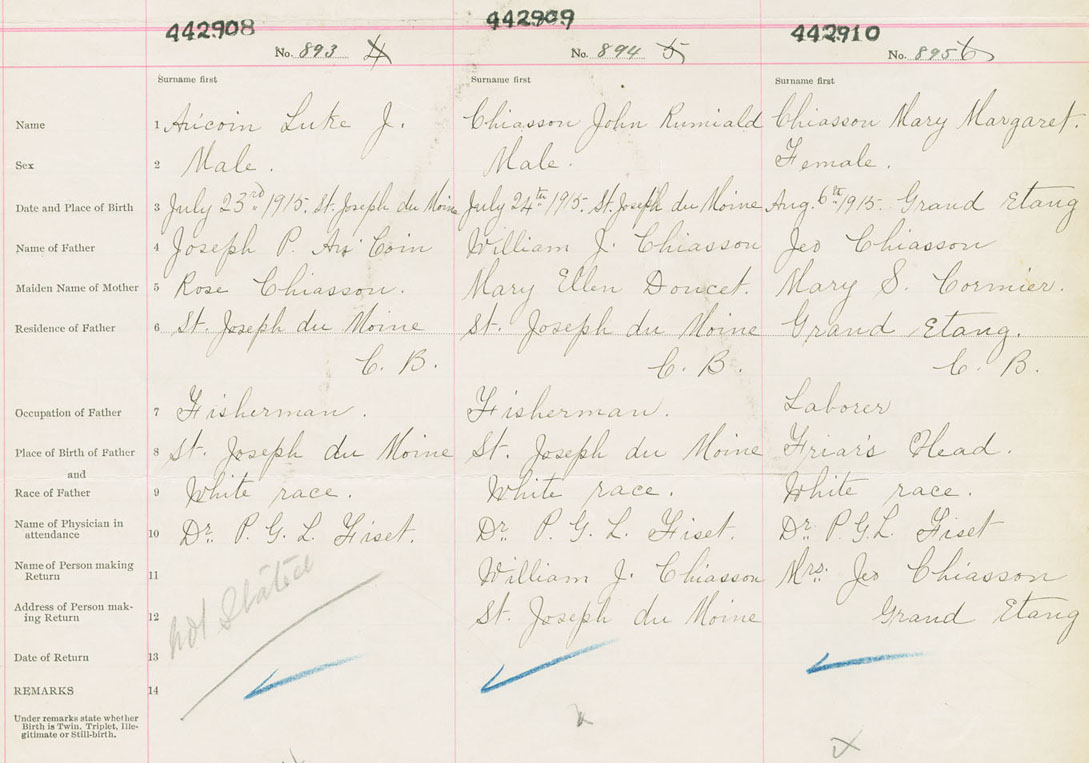 442908 442909 442910
No. 893 4 No. 894 5 No. 895 6
Surname first Surname first Surname first
Name 1 Aucoin Luke J. Chiasson John Rumiald Chiasson Mary Margaret.
Sex 2 Male. Male. Female.
Date and Place of Birth 3 July 23rd 1915. St. Joseph du Moine July 24th 1915. St. Joseph du Moine Aug. 6th 1915. Grand Etang
Name of Father 4 Joseph P. Au Coin William J. Chiasson Jeo Chiasson
Maiden Name of Mother 5 Rose Chiasson. Mary Ellen Doucet. Mary S. Cormier.
Residence of Father 6 St. Joseph du Moine St. Joseph du Moine Grand Etang.
C. B. C. B. C. B.
Occupation of Father 7 Fisherman. Fisherman. Laborer
Place of Birth of Father 8 St. Joseph du Moine St. Joseph du Moine Friar's Head.
and
Race of Father 9 White race. White race. White race.
Name of Physician in
attendance 10 Dr. P. G. L. Fiset. Dr. P. G. L. Fiset. Dr. P.G.L. Fiset
Name of Person making
Return 11 not Stated William J. Chiasson Mrs. Jeo Chiasson
Address of Person mak-
ing Return 12 St. Joseph du Moine Grand Etang
Date of Return 13
REMARKS 14
Under remarks state whether
Birth is Twin, Triplet, Ille-
gitimate or Still-birth.